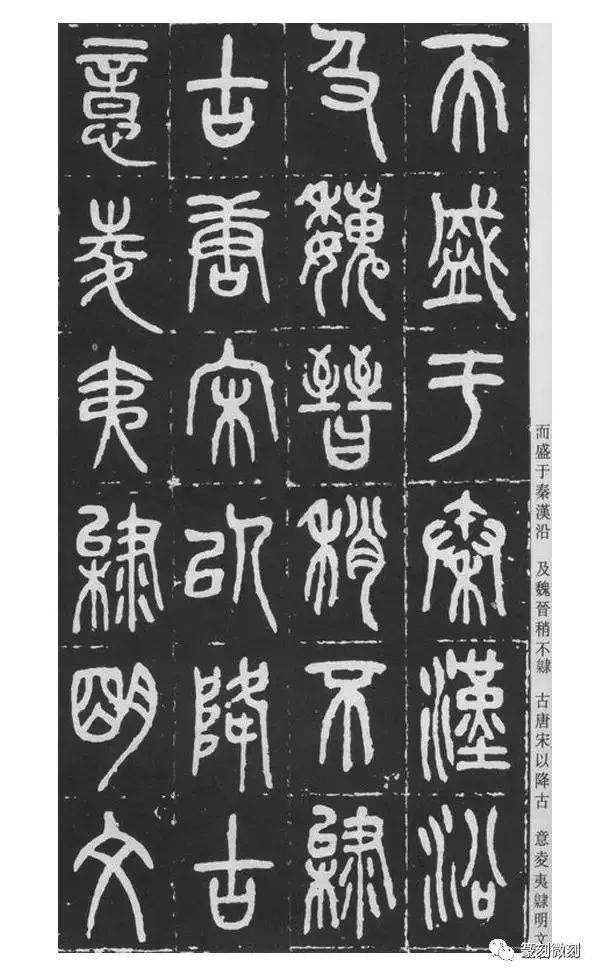 而盛于秦漢沿
及魏晉稍不隸
古唐宋以降古
意夌夷隸明文
而盛于秦漢沿 及魏晉稍不隸 古唐宋以降古 意夌夷隸明文
篆刻微刻